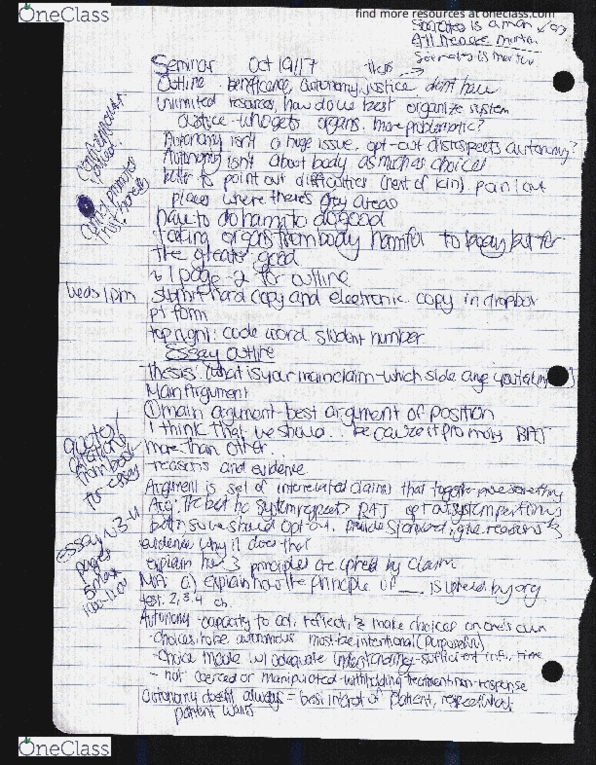 OneClass
find more resources at oneclass.com
Socrates is a man
All men are mortal
Socrates is mortal
Seminar Oct 19/17
Outline - beneficence, autonomy, justice don't have
unlimited resources, how do we best organize system
justice - who gets organs. more problematic?
Autonomy isn't a huge issue. opt-out disrespects autonomy?
Autonomy isn't about body as much as choices
better to point out difficulties (next of kin) point out
places where there's grey areas
have to do harm to do good
taking organs from body harmful to body but for
the greater good
1 page - 2 for outline
Weds 1pm
submit hard copy and electronic copy in dropbox
pt form
top right: code word student number
Essay outline
thesis: what is your main claim - which side are you taking
Main Argument
① main argument - best argument of position
I think that we should... because it promotes BAJ
more than other
- reasons and evidence
quote/
citations
from book
for essay
Argument is set of interrelated claims that together prove something
Arg: The best hc system respects BAJ opt out system
both so we should opt-out. give reasons &
evidence why it does that
essay 3-4
pages
5 max
1000-1200
explain how 3 principles are upheld by claim
MA: a) explain how the principle of __ is upheld by org
text. 2, 3, 4 ch.
Autonomy - capacity to act, reflect, & make choices on one's own
- choices to be autonomous must be intentional (purposeful)
- choice made w/ adequate understanding - sufficient info, time
- not coerced or manipulated - withholding treatment non-response
autonomy doesn't always = best interest of patient, respect what
patient wants
OneClass